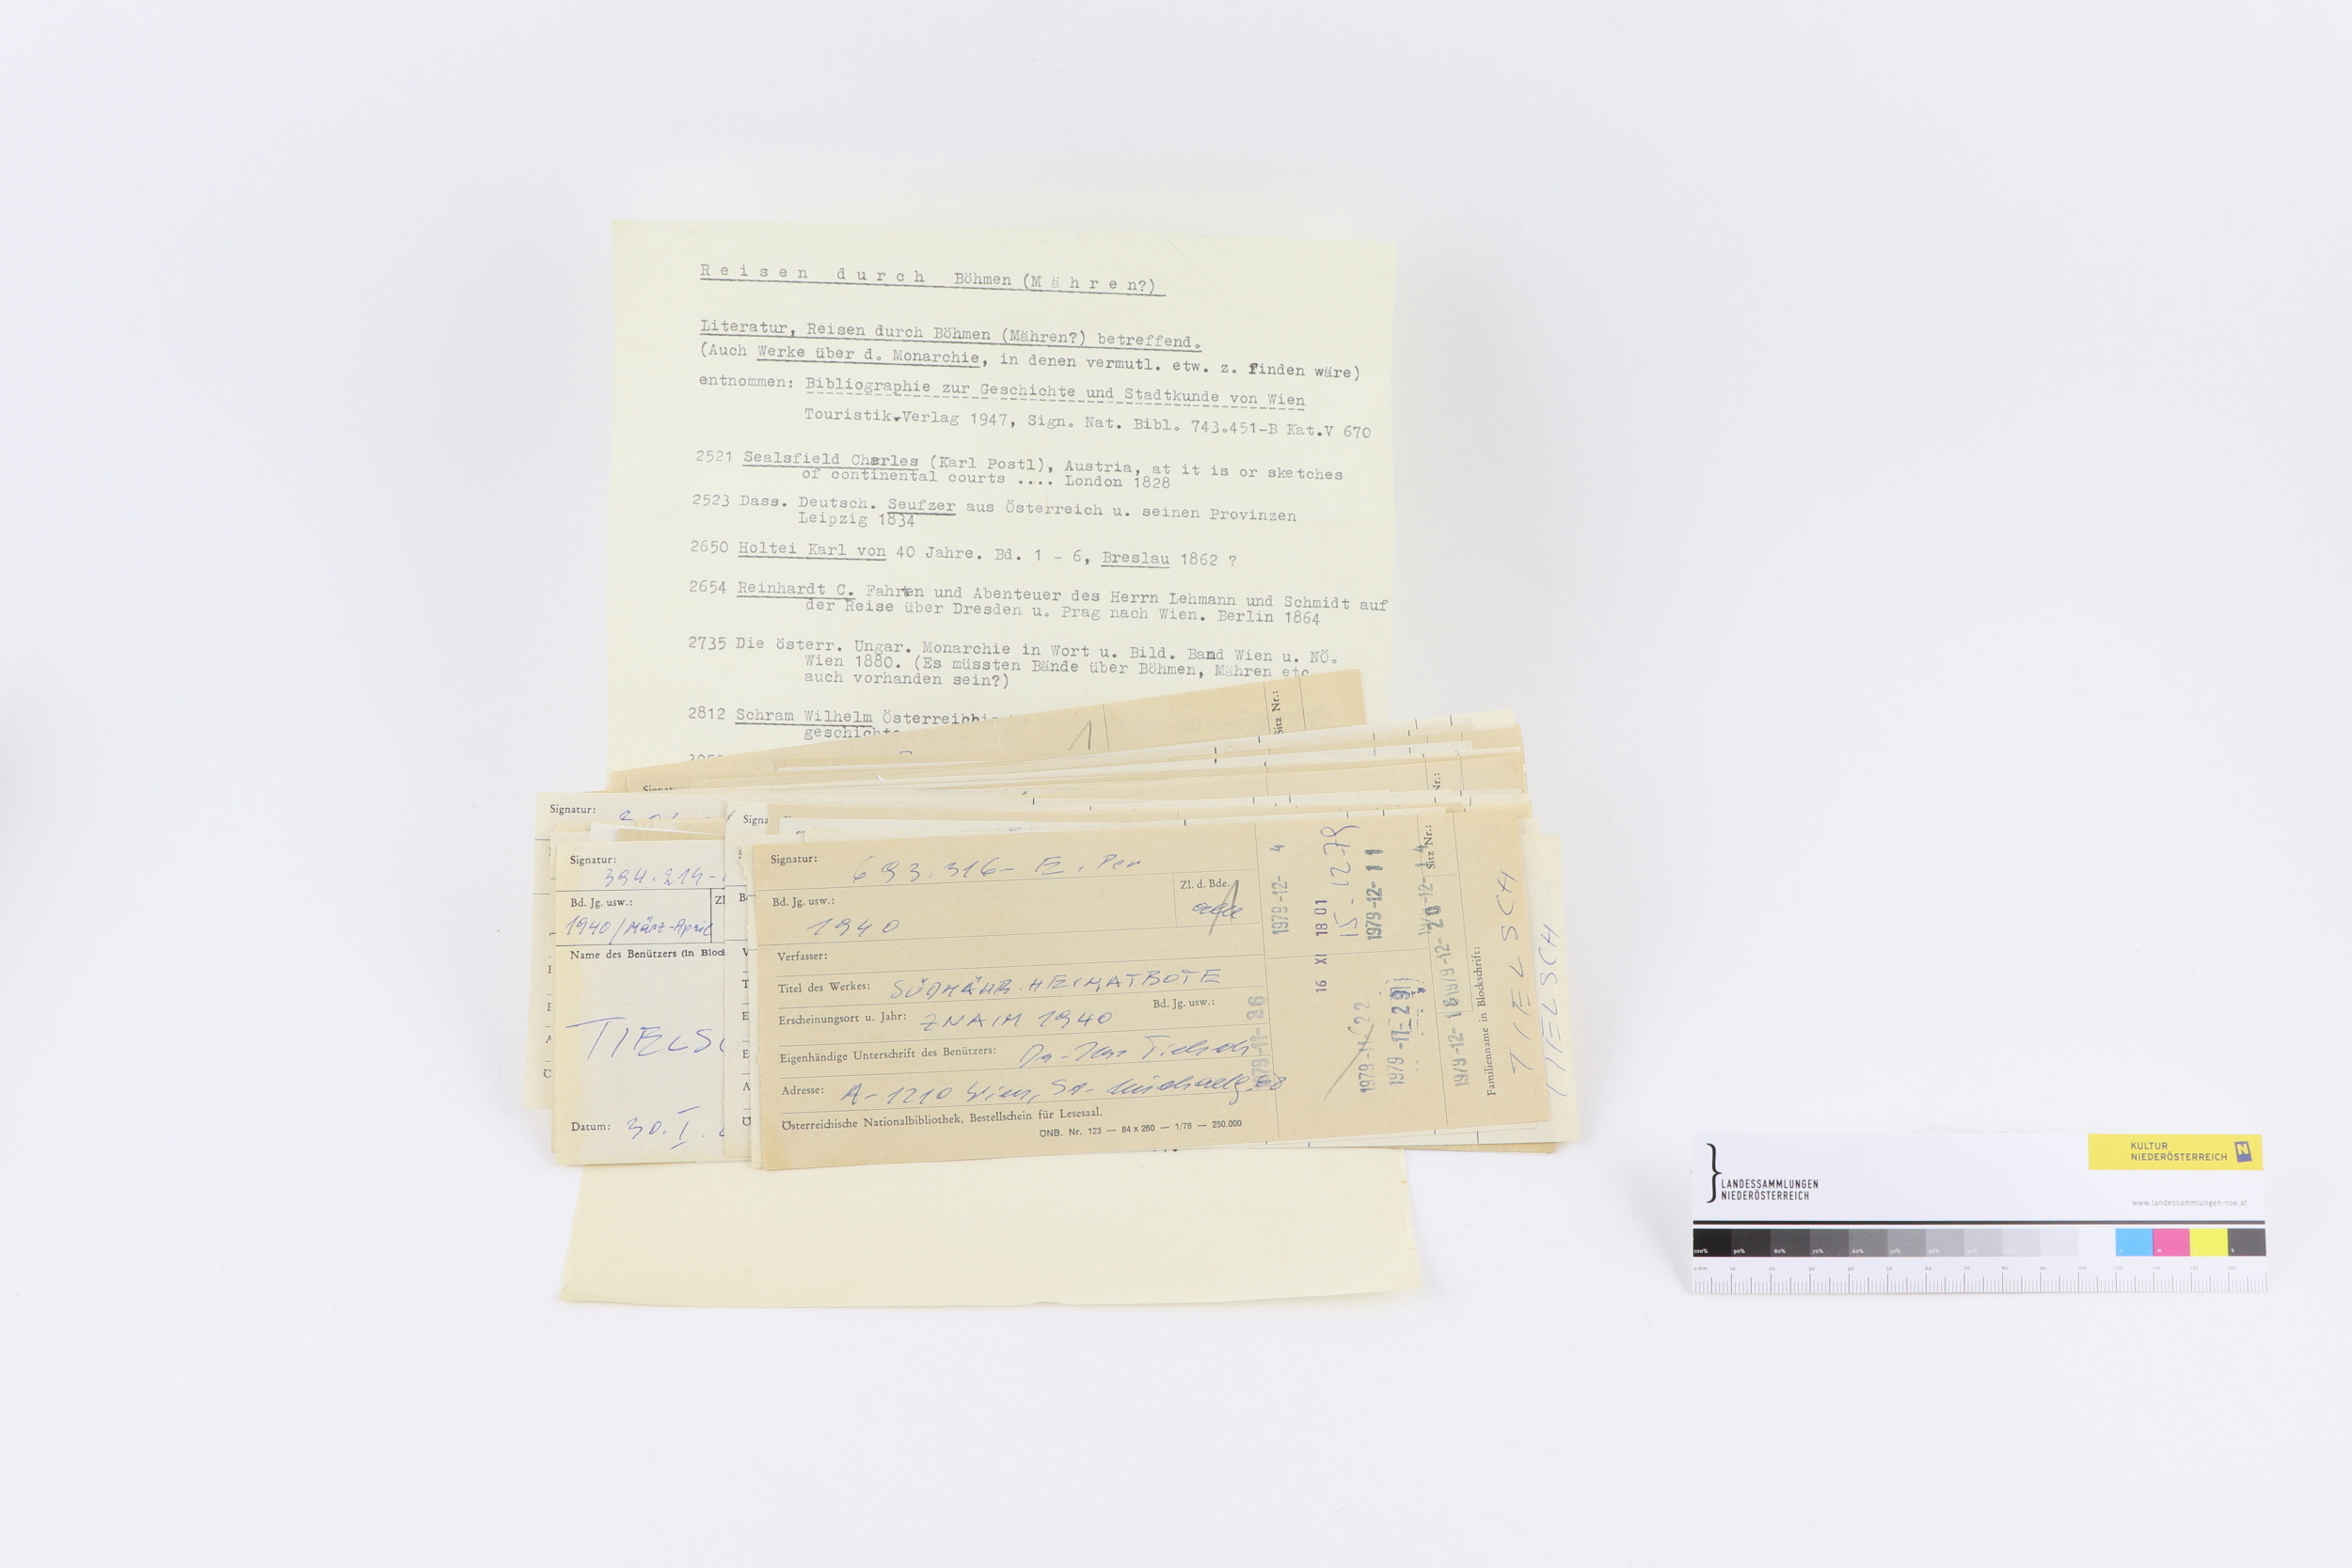 Reisen durch Böhmen (Mähren?)
Literatur, Reisen durch Böhmen (Mähren?) betreffend.
(Auch Werke über d. Monarchie, in denen vermutl. etw. z. finden wäre)
entnommen: Bibliographie zur Geschichte und Stadtkunde von Wien
Touristik-Verlag 1947, Sign. Nat. Bibl. 743.451-B Kat.V 670
2521 Sealsfield Charles (Karl Postl), Austria, at it is or sketches
of continental courts .... London 1828
2523 Dass. Deutsch. Seufzer aus Österreich u. seinen Provinzen
Leipzig 1834
2650 Holtei Karl von 40 Jahre. Bd. 1 - 6, Breslau 1862 ?
2654 Reinhardt C. Fahrten und Abenteuer des Herrn Lehmann und Schmidt auf
der Reise über Dresden u. Prag nach Wien. Berlin 1864
2735 Die österr. Ungar. Monarchie in Wort u. Bild. Band Wien u. NÖ.
Wien 1880. (Es müssten Bände über Böhmen, Mähren etc
auch vorhanden sein?)
2812 Schram Wilhelm
geschichte
1
Sitz Nr.:
Signatur:
Signatur:
394.214-
Bd. Jg. usw.:
1940/März-April
Name des Benützers (in Block
TIELSC
Datum: 30.I.
Signatur: 693.316- E. Per
Bd. Jg. usw.: 1940
Zl. d. Bde.
Verfasser:
Titel des Werkes: SÜDMÄHR. HEIMATBOTE
Bd. Jg. usw.:
Erscheinungsort u. Jahr: ZNAIM 1940
Eigenhändige Unterschrift des Benützers: Dr. Ilse Tielsch
Adresse: A-1210 Wien,
Österreichische Nationalbibliothek, Bestellschein für Lesesaal.
ÖNB. Nr. 123 — 84 x 260 — 1/78 — 250.000
1979-12- 4
1979-11- 26
16 XI 18 01
15-1279
1979-12- 11
1979-11- 22
1979-11- 29
1979-12- 20
1979-12- 18
Sitz Nr.:
Familienname in Blockschrift:
TIELSCH
TIELSCH
LANDESSAMMLUNGEN
NIEDERÖSTERREICH
KULTUR
NIEDERÖSTERREICH
www.landessammlungen-noe.at